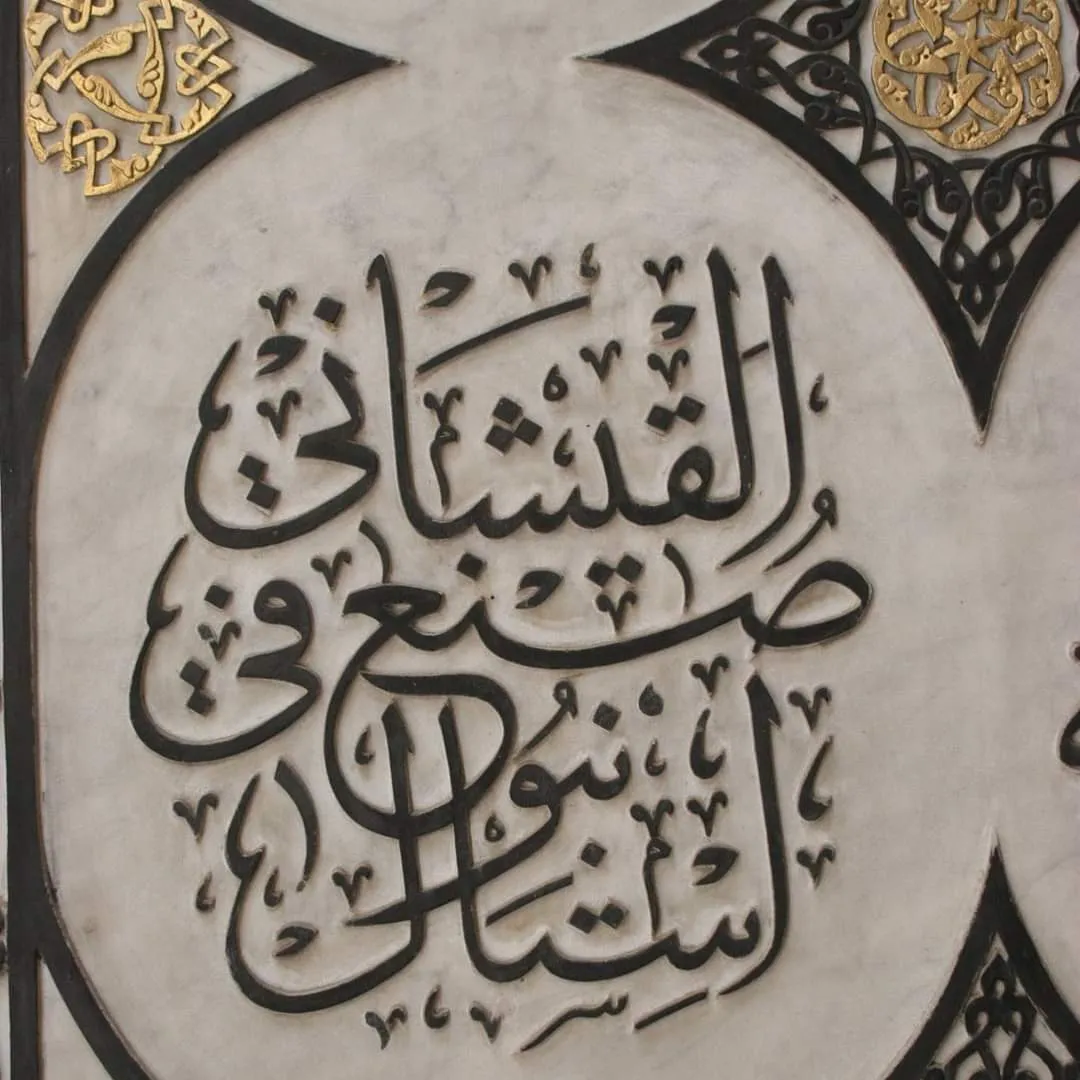 القيشاني
صنع في
استانبول